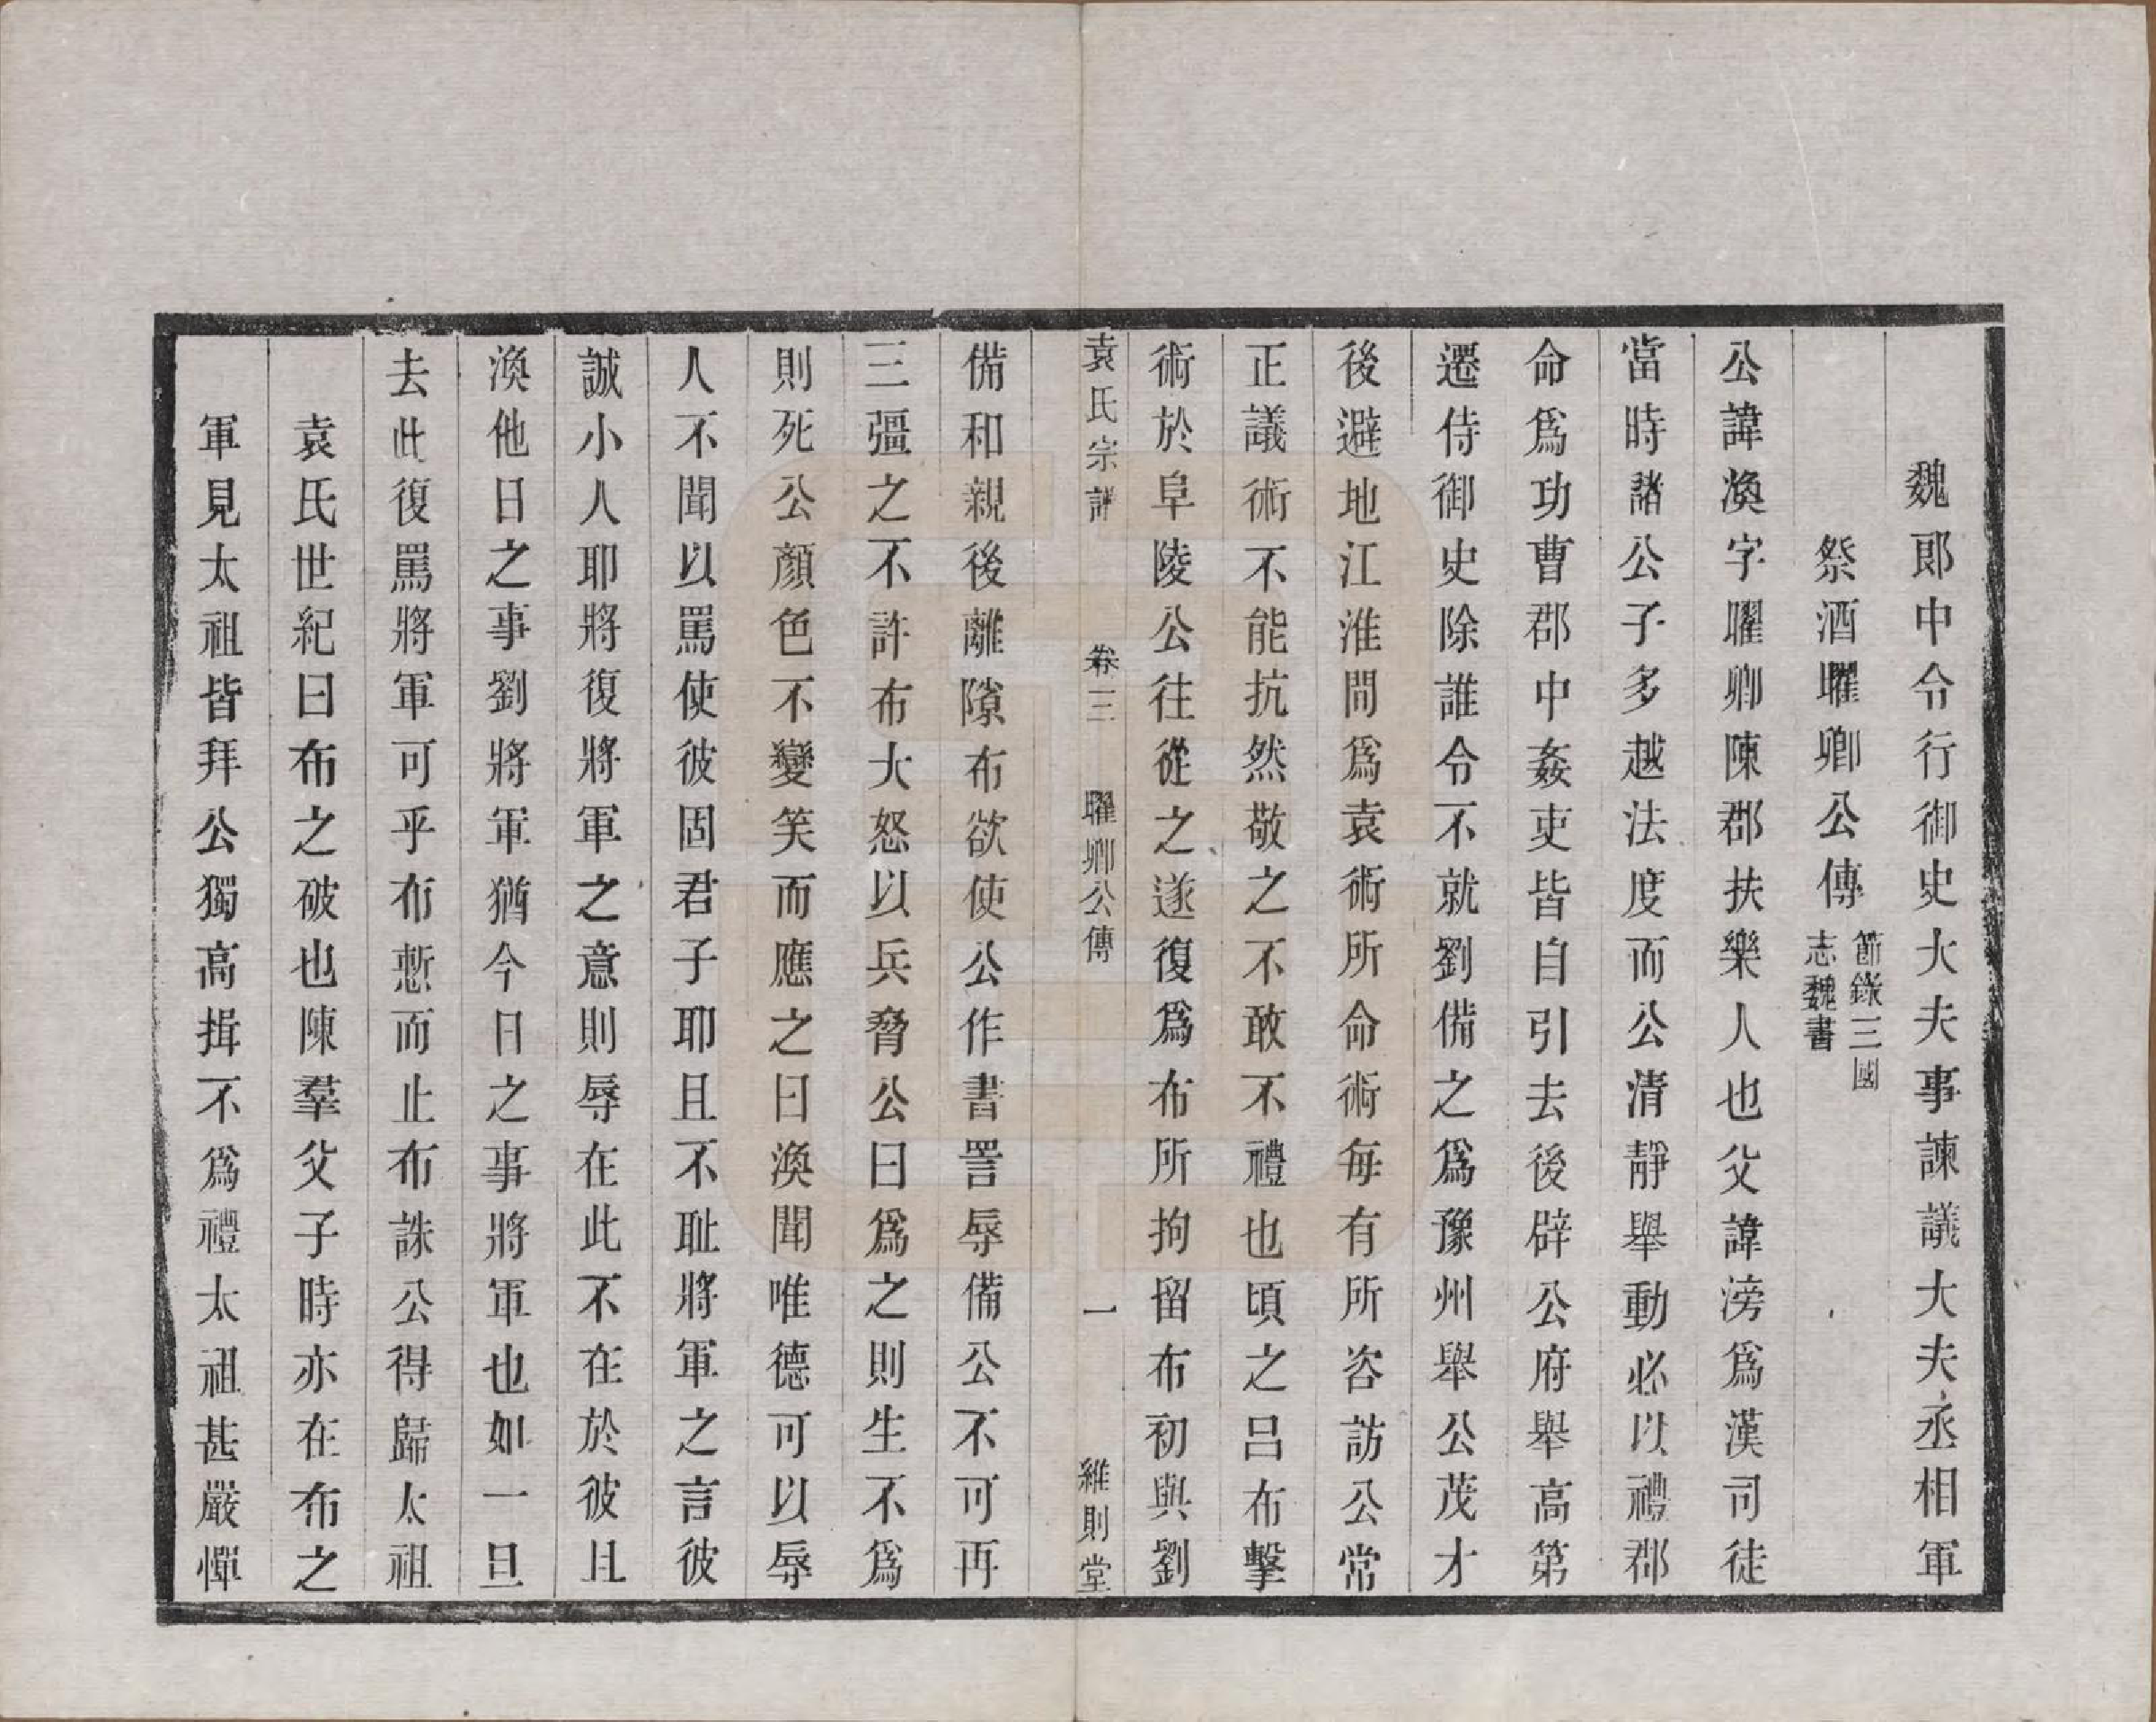 魏郎中令行御史大夫事諫議大夫丞相軍
祭酒曜卿公傳
節錄三國
志魏書
公諱渙字曜卿陳郡扶樂人也父諱滂爲漢司徒
當時諸公子多越法度而公清靜舉動必以禮郡
命爲功曹郡中姦吏皆自引去後辟公府舉高第
遷侍御史除譙令不就劉備之爲豫州舉公茂才
後避地江淮間爲袁術所命術每有所咨訪公常
正議術不能抗然敬之不敢不禮也頃之呂布擊
術於阜陵公往從之遂復爲布所拘留布初與劉
袁氏宗譜 卷三 曜卿公傳 一 維則堂
備和親後離隙布欲使公作書詈辱備公不可再
三彊之不許布大怒以兵脅公曰爲之則生不爲
則死公顏色不變笑而應之曰渙聞唯德可以辱
人不聞以罵使彼固君子耶且不耻將軍之言彼
誠小人耶將復將軍之意則辱在此不在於彼且
渙他日之事劉將軍猶今日之事將軍也如一旦
去此復罵將軍可乎布慙而止布誅公得歸太祖
袁氏世紀曰布之破也陳羣父子時亦在布之
軍見太祖皆拜公獨高揖不爲禮太祖甚嚴憚